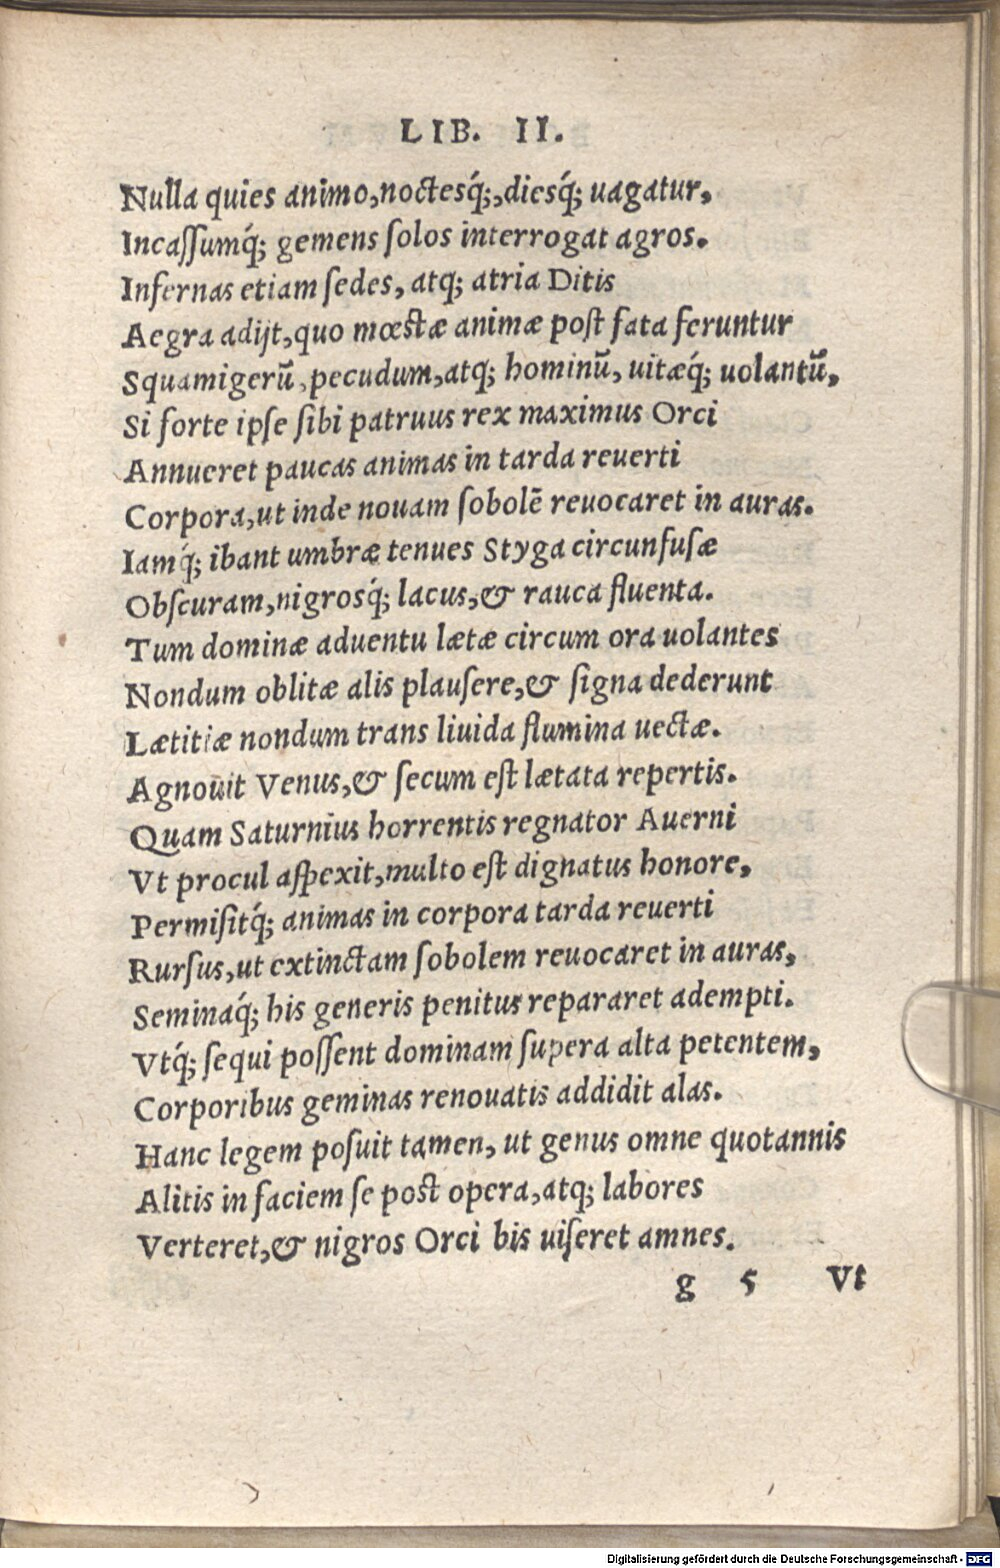 LIB. II.
Nulla quies animo,noctesq́;,diesq́; uagatur,
Incaſſumq́; gemens ſolos interrogat agros.
Infernas etiam ſedes, atq; atria Ditis
Aegra adijt,quo mœstæ animæ poſt fata feruntur
Squamigerũ,pecudum,atq; hominũ, uitæq́; uolantũ,
Si forte ipſe ſibi patruus rex maximus Orci
Annueret paucas animas in tarda reuerti
Corpora,ut inde nouam ſobolẽ reuocaret in auras.
Iamq́; ibant umbræ tenues Styga circunfuſæ
Obſcuram,nigrosq́; lacus,& rauca fluenta.
Tum dominæ aduentu lætæ circum ora uolantes
Nondum oblitæ alis plauſere,& ſigna dederunt
Lætitiæ nondum trans liuida flumina uectæ.
Agnouit Venus,& ſecum eſt lætata repertis.
Quam Saturnius horrentis regnator Auerni
Vt procul aſpexit,multo eſt dignatus honore,
Permiſitq́; animas in corpora tarda reuerti
Rurſus,ut extinctam ſobolem reuocaret in auras,
Seminaq́; his generis penitus repararet adempti.
Vtq́; ſequi poſſent dominam ſupera alta petentem,
Corporibus geminas renouatis addidit alas.
Hanc legem poſuit tamen, ut genus omne quotannis
Alitis in faciem ſe post opera,atq; labores
Verteret,& nigros Orci bis uiſeret amnes.
g 5 Vt
Digitalisierung gefördert durch die Deutsche Forschungsgemeinschaft - DFG